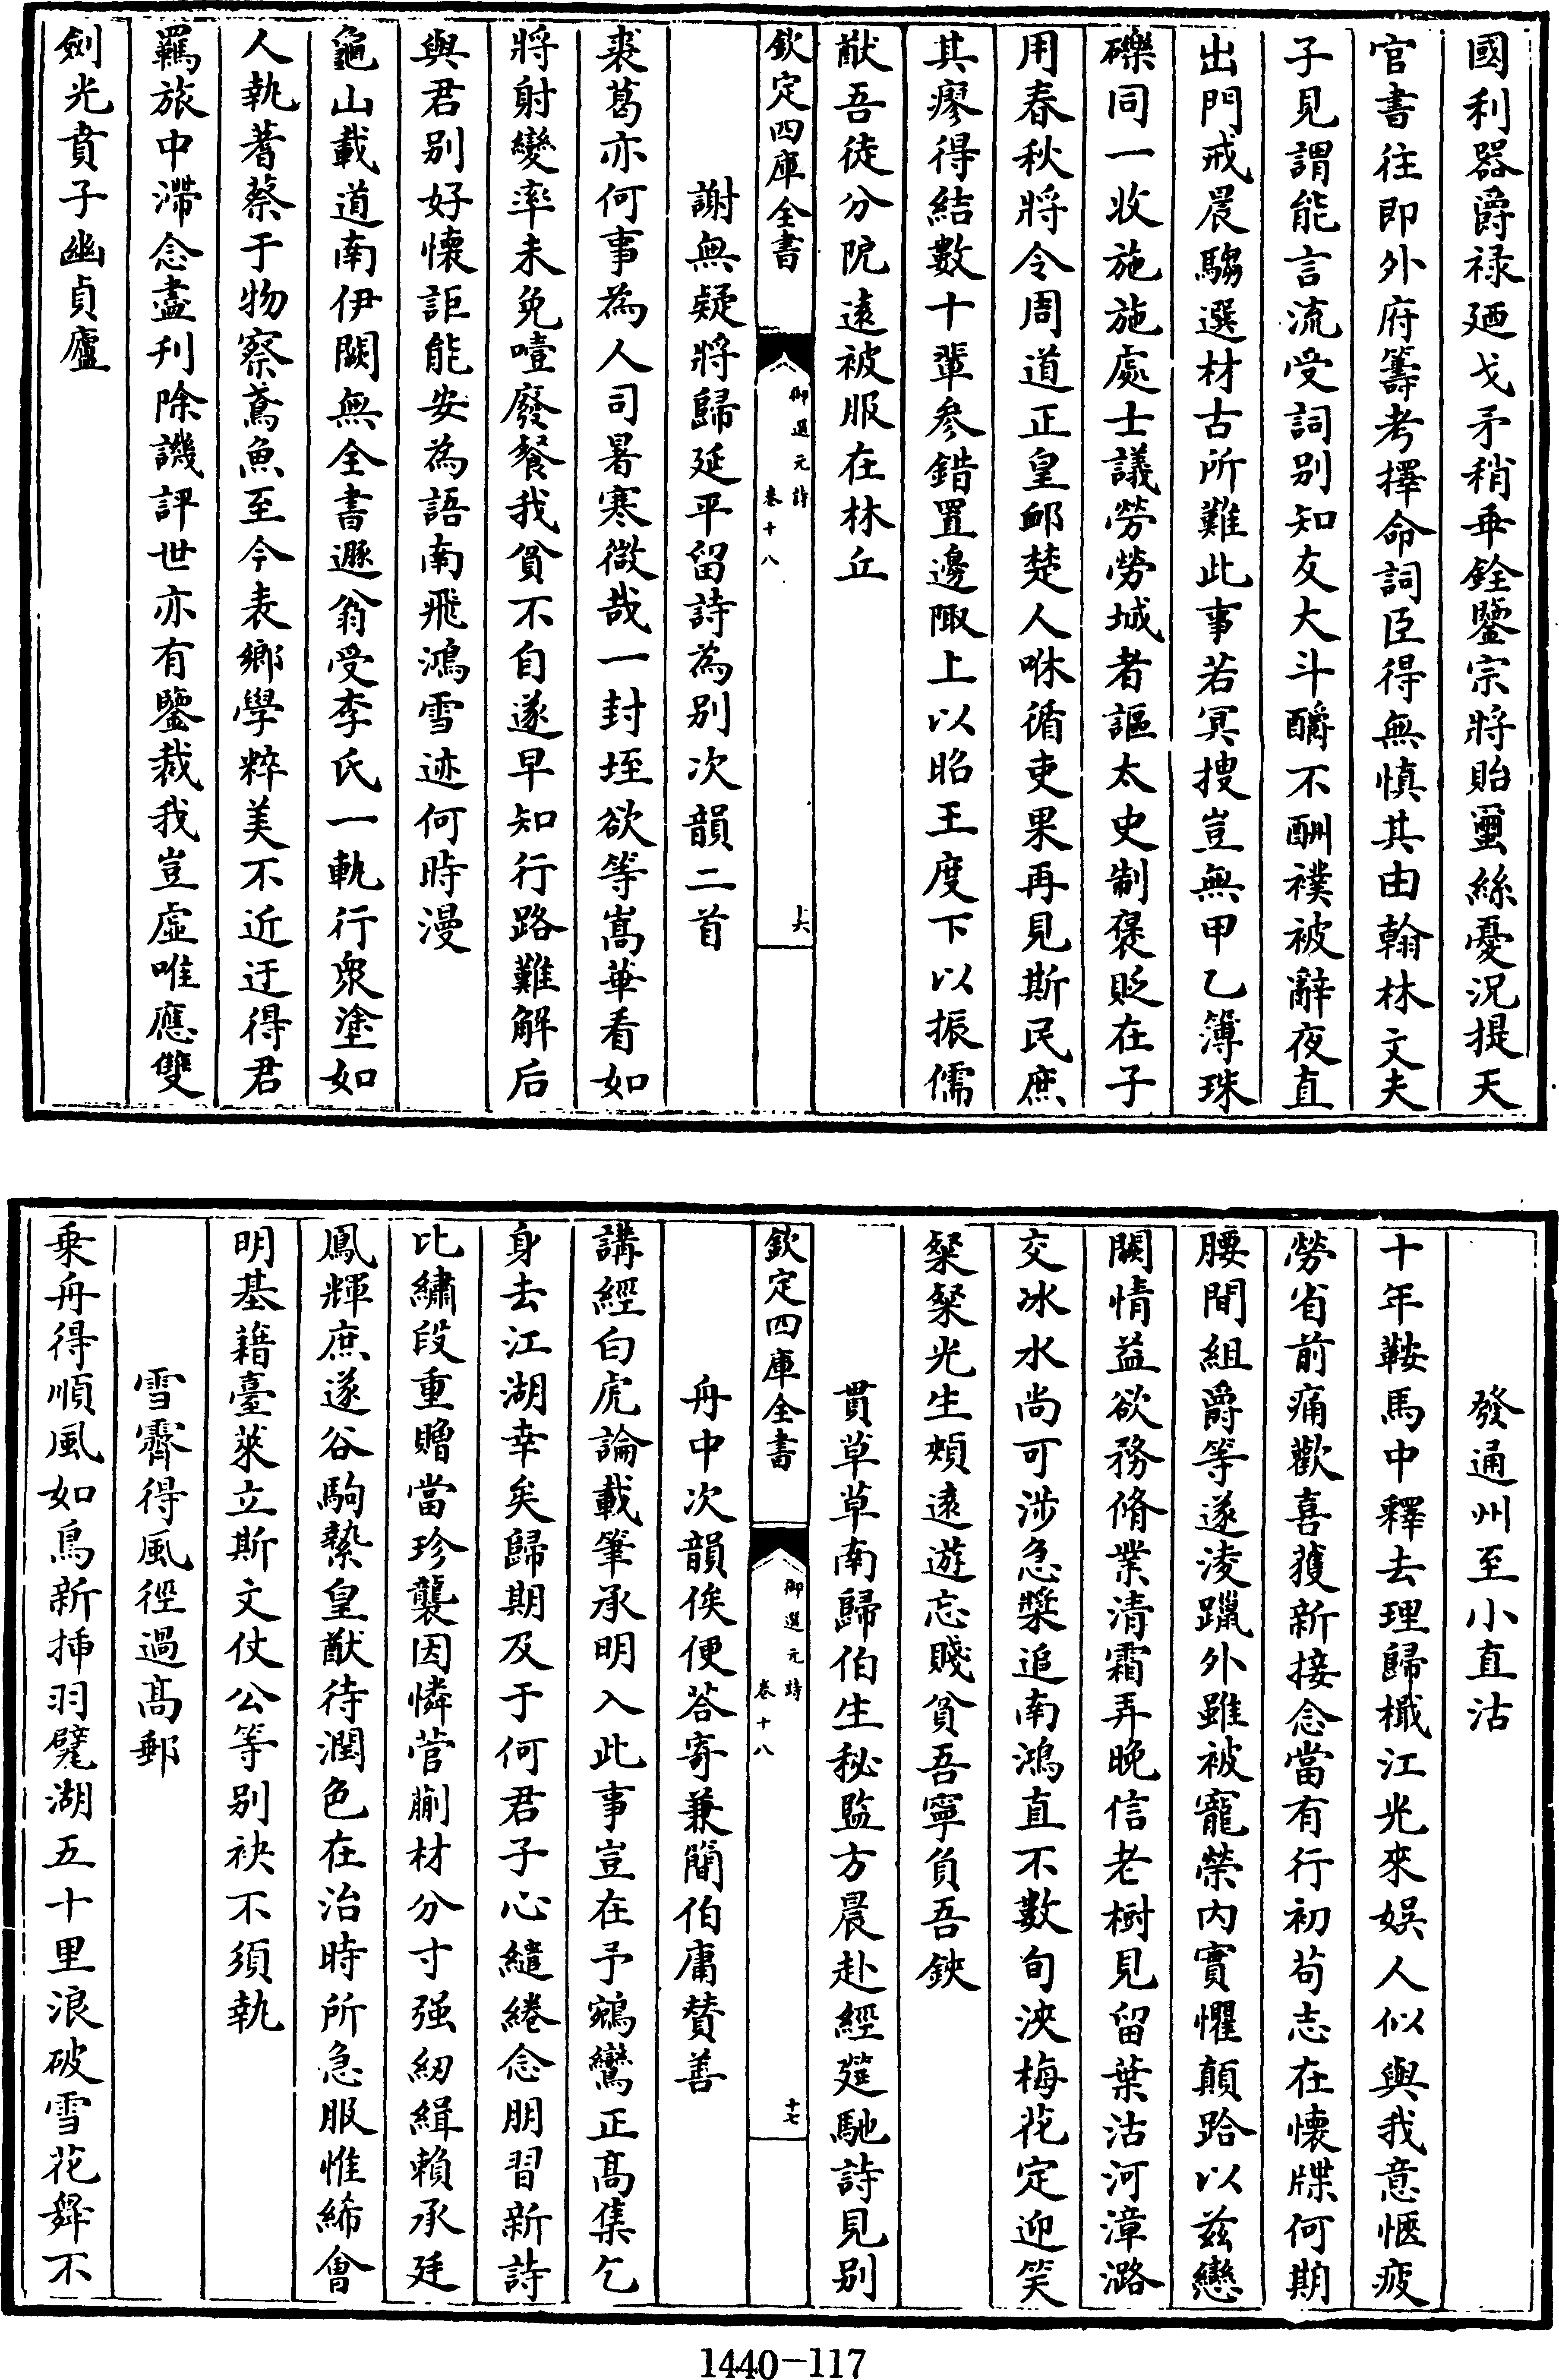 國利器爵禄廼戈矛稍垂銓鑒宗將貽璽絲憂况提天
官書往即外府籌考擇命詞臣得無慎其由翰林文夫
子見謂能言流受詞别知友大斗釂不酬襆被辭夜直
出門戒晨騶選材古所難此事若冥搜豈無甲乙簿珠
礫同一收施施處士議勞勞城者謳太史制褒貶在子
用春秋將令周道正皇邮楚人咻循吏果再見斯民庶
其瘳得結數十輩參錯置邊陬上以昭王度下以振儒
猷吾徒分院遠被服在林丘
欽定四庫全書
御選元詩
卷十八
十六
謝無疑將歸延平留詩為别次韻二首
裘葛亦何事為人司暑寒微哉一封垤欲等嵩華看如
將射變率未免噎廢餐我貧不自遂早知行路難解后
與君别好懷詎能安為語南飛鴻雪迹何時漫
龜山載道南伊闕無全書遯翁受李氏一軌行衆塗如
人執蓍蔡于物察鳶魚至今表鄉學粹美不近迂得君
羈旅中滯念盡刋除譏評世亦有鑒裁我豈虛唯應雙
劍光賁子幽貞廬
發通州至小直沽
十年鞍馬中釋去理歸檝江光來娱人似與我意愜疲
勞省前痛歡喜獲新接念當有行初苟志在懷牒何期
腰間組爵等遂淩躐外雖被寵榮内實懼顛跲以兹戀
闕情益欲務脩業清霜弄晩信老樹見留葉沽河漳潞
交冰水尚可涉急槳追南鴻直不數旬浹梅花定迎笑
粲粲光生頰遠遊忘賤貧吾寧負吾鋏
貫草草南歸伯生秘監方晨赴經筵馳詩見别
欽定四庫全書
御選元詩
卷十八
十七
舟中次韻俟便荅寄兼簡伯庸賛善
講經白虎論載筆承明入此事豈在予鵷鸞正高集乞
身去江湖幸矣歸期及于何君子心繾綣念朋習新詩
比繡段重贈當珍襲因憐菅蒯材分寸强紉緝賴承廷
鳳輝庶遂谷駒縶皇猷待潤色在治時所急服惟絺㑹
明基藉臺萊立斯文仗公等别袂不須執
雪霽得風徑過高郵
乗舟得順風如鳥新揷羽躄湖五十里浪破雪花舞不
1440-117